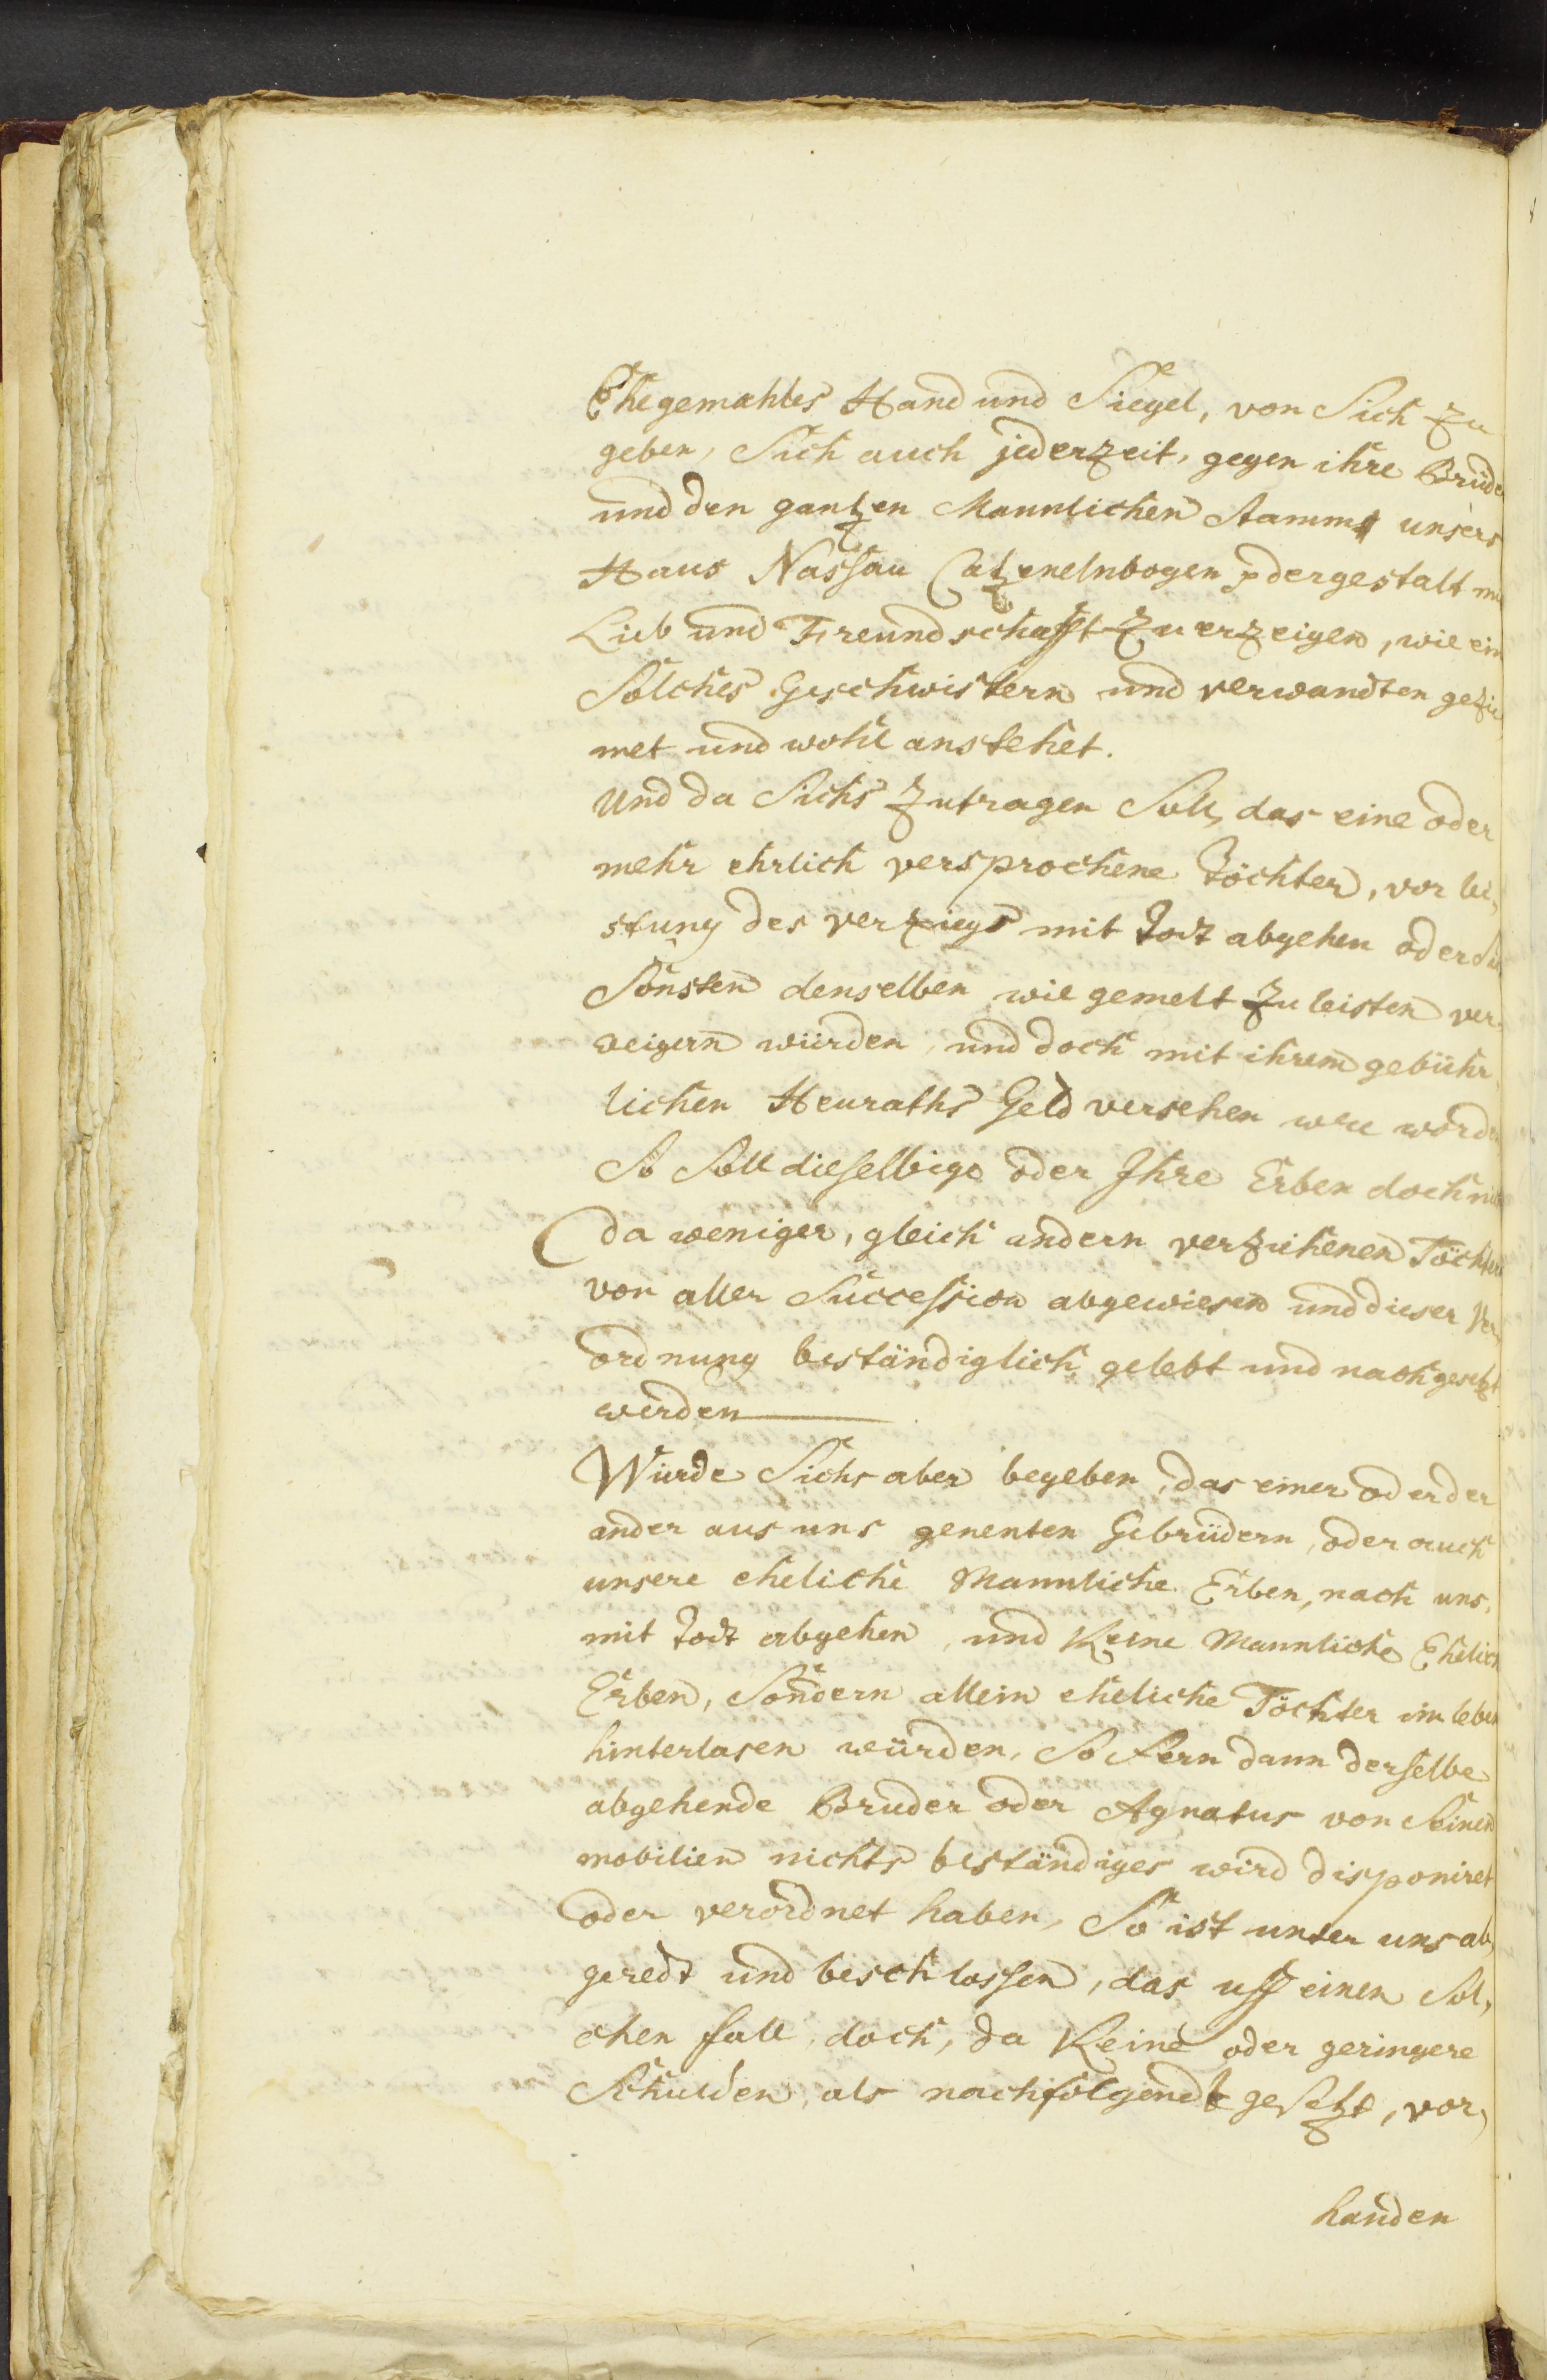 Ehegemahles Hand und Siegel, von Sich zu
geben, Sich auch jederzeit, gegen ihre Brüde
und den gantzen Mannlichen Stamms unsers
Haus Nassau Catzenelnbogen dergestalt
Lieb und Freundschafft zu erzeigen, wie ein
Solches Geschwistern und verwandten gezie
met und wohl anstehet.
Und da Sichs zutragen Soll, das eine oder
mehr ehrlich versprochene Töchter, vor lei,
stung des verziegs mit Todt abgehen oder
Sonsten denselben wie gemelt zu leisten ver,
weigern würden, und doch mit ihrem gebühr
lichen Heuraths Geld versehen worde
So Soll dieselbige oder Ihre Erben doch
da weniger, gleich andern verziehenen Töchter
von aller Succession abgewiesen und dieser Ver
ordnung beständiglich gelebt und nachgesetzt
werden
Würde Sichs aber begeben, das einer oder der
ander aus uns genenten Gebrüdern, oder auch
unsere eheliche Mannliche Erben, nach uns,
mit Todt abgehen, und Keine Mannliche Ehelich
Erben, Sondern allein eheliche Töchter im leben
hinterlasen würden, So Fern dann derselbe
abgehende Bruder oder Agnatus von Seinen
mobilien nichts beständiges wird disponiret
oder verordnet haben, So ist unter uns ab,
geredt und beschlossen, das uff einen Sol,
chen fall doch, da Keine oder geringere
Schulden, als nachfolgendt gesetzt, vor,
handen